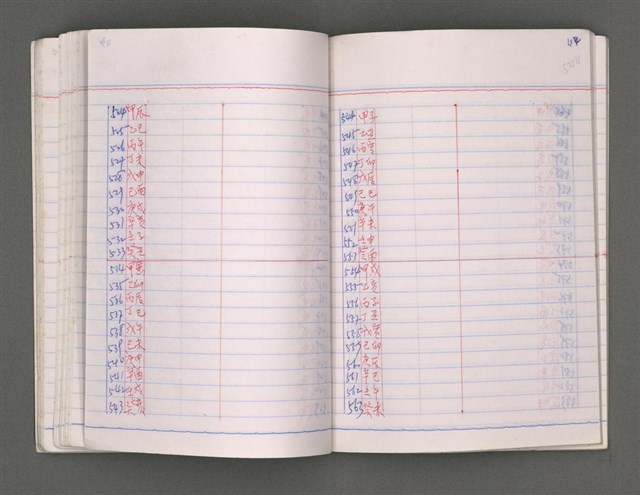 524 甲辰
525 乙巳
526 丙午
527 丁未
528 戊申
529 己酉
530 庚戌
531 辛亥
532 壬子
533 癸丑
534 甲寅
535 乙卯
536 丙辰
537 丁巳
538 戊午
539 己未
540 庚申
541 辛酉
542 壬戌
543 癸亥
544 甲子
545 乙丑
546 丙寅
547 丁卯
548 戊辰
己巳
庚午
551 辛未
552 壬申
553 癸酉
554 甲戌
555 乙亥
556 丙子
557 丁丑
558 戊寅
559 己卯
560 庚辰
561 辛巳
562 壬午
563 癸未